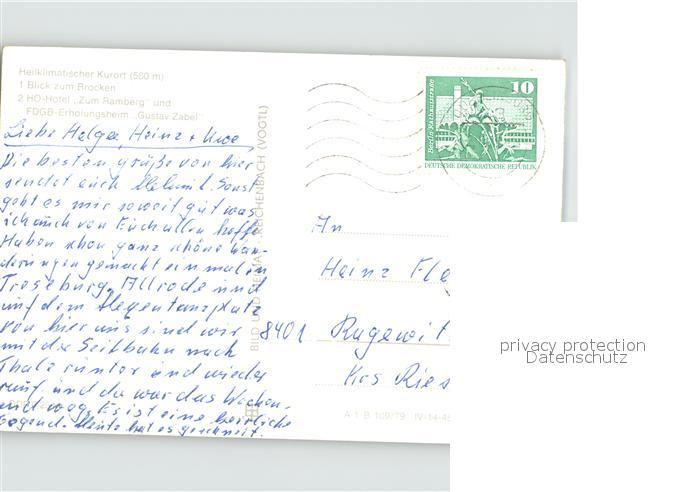 Heilklimatischer Kurort (580 m)
1 Blick zum Brocken
2 HO-Hotel „Zum Ramberg" und
FDGB-Erholungsheim „Gustav Zabel"
Liebe Helga, Heinz + Uwe
Die besten Grüße von hier
sendet euch Helmut. Sonst
geht es mir soweit gut was
ich auch von Euch allen hoffe
Haben schon ganz schöne Wan-
derungen gemacht einmal in
Treseburg, Allrode und
auf dem Hexentanzplatz
von hier aus sind wir
mit der Seilbahn nach
Thale runter und wieder
rauf, und da war das Wochen-
end weg. Es ist eine herrliche
Gegend. Heute hat es geschneit.
BILD UND HEIMAT REICHENBACH (VOGTL)
10
Berlin, Rathausstraße
DEUTSCHE DEMOKRATISCHE REPUBLIK
An
Heinz
8401
Kreis Ries
A 1 B 109/79 IV-14-45
privacy protection
Datenschutz